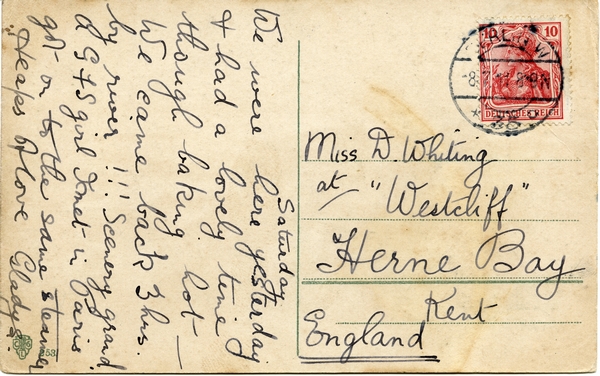 Saturday
We were here yesterday
& had a lovely time
though baking hot —
We came back 3 hrs.
by river !!! Scenery grand
A GFS girl I met in Paris
got on to the same steamer
Heaps of love Gladys.
Miss D. Whiting
at "Westcliff"
Herne Bay
Kent
England
10 10
DEUTSCHES REICH
BERLIN W